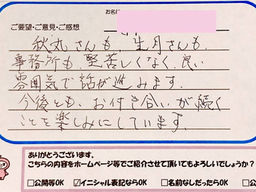 お名前
ご要望・ご意見・ご感想
秋丸さんも 生月さんも、
事務所も 堅苦しくなく、良い
雰囲気で話が進みます。
今後とも、お付き合いが続く
ことを楽しみにしています。
ありがとうございます。
こちらの内容をホームページ等でご紹介させて頂いてもよろしいでしょうか?
□公開等OK ☑イニシャル表記ならOK □名前なしだったらOK